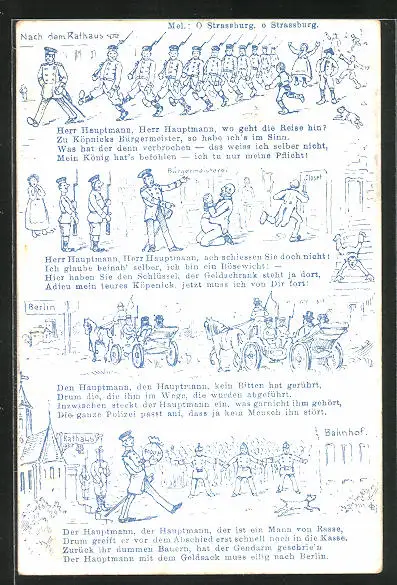 Mel.: O Strassburg, o Strassburg.
Nach dem Rathaus
Herr Hauptmann, Herr Hauptmann, wo geht die Reise hin?
Zu Köpnicks Bürgermeister, so habe ich's im Sinn.
Was hat der denn verbrochen — das weiss ich selber nicht,
Mein König hat's befohlen — ich tu nur meine Pflicht!
Bürgermeisterei
Closet
Herr Hauptmann, Herr Hauptmann, ach schiessen Sie doch nicht!
Ich glaube beinah' selber, ich bin ein Bösewicht! —
Hier haben Sie den Schlüssel, der Geldschrank steht ja dort,
Adieu mein teures Köpenick, jetzt muss ich von Dir fort!
Berlin
Den Hauptmann, den Hauptmann, kein Bitten hat gerührt,
Drum die, die ihm im Wege, die wurden abgeführt.
Inzwischen steckt der Hauptmann ein, was garnicht ihm gehört,
Die ganze Polizei passt auf, dass ja kein Mensch ihn stört.
Rathaus
Bahnhof
Der Hauptmann, der Hauptmann, der ist ein Mann von Rasse,
Drum greift er vor dem Abschied erst schnell noch in die Kasse.
Zurück ihr dummen Bauern, hat der Gendarm geschrie'n
Der Hauptmann mit dem Geldsack muss eilig nach Berlin.